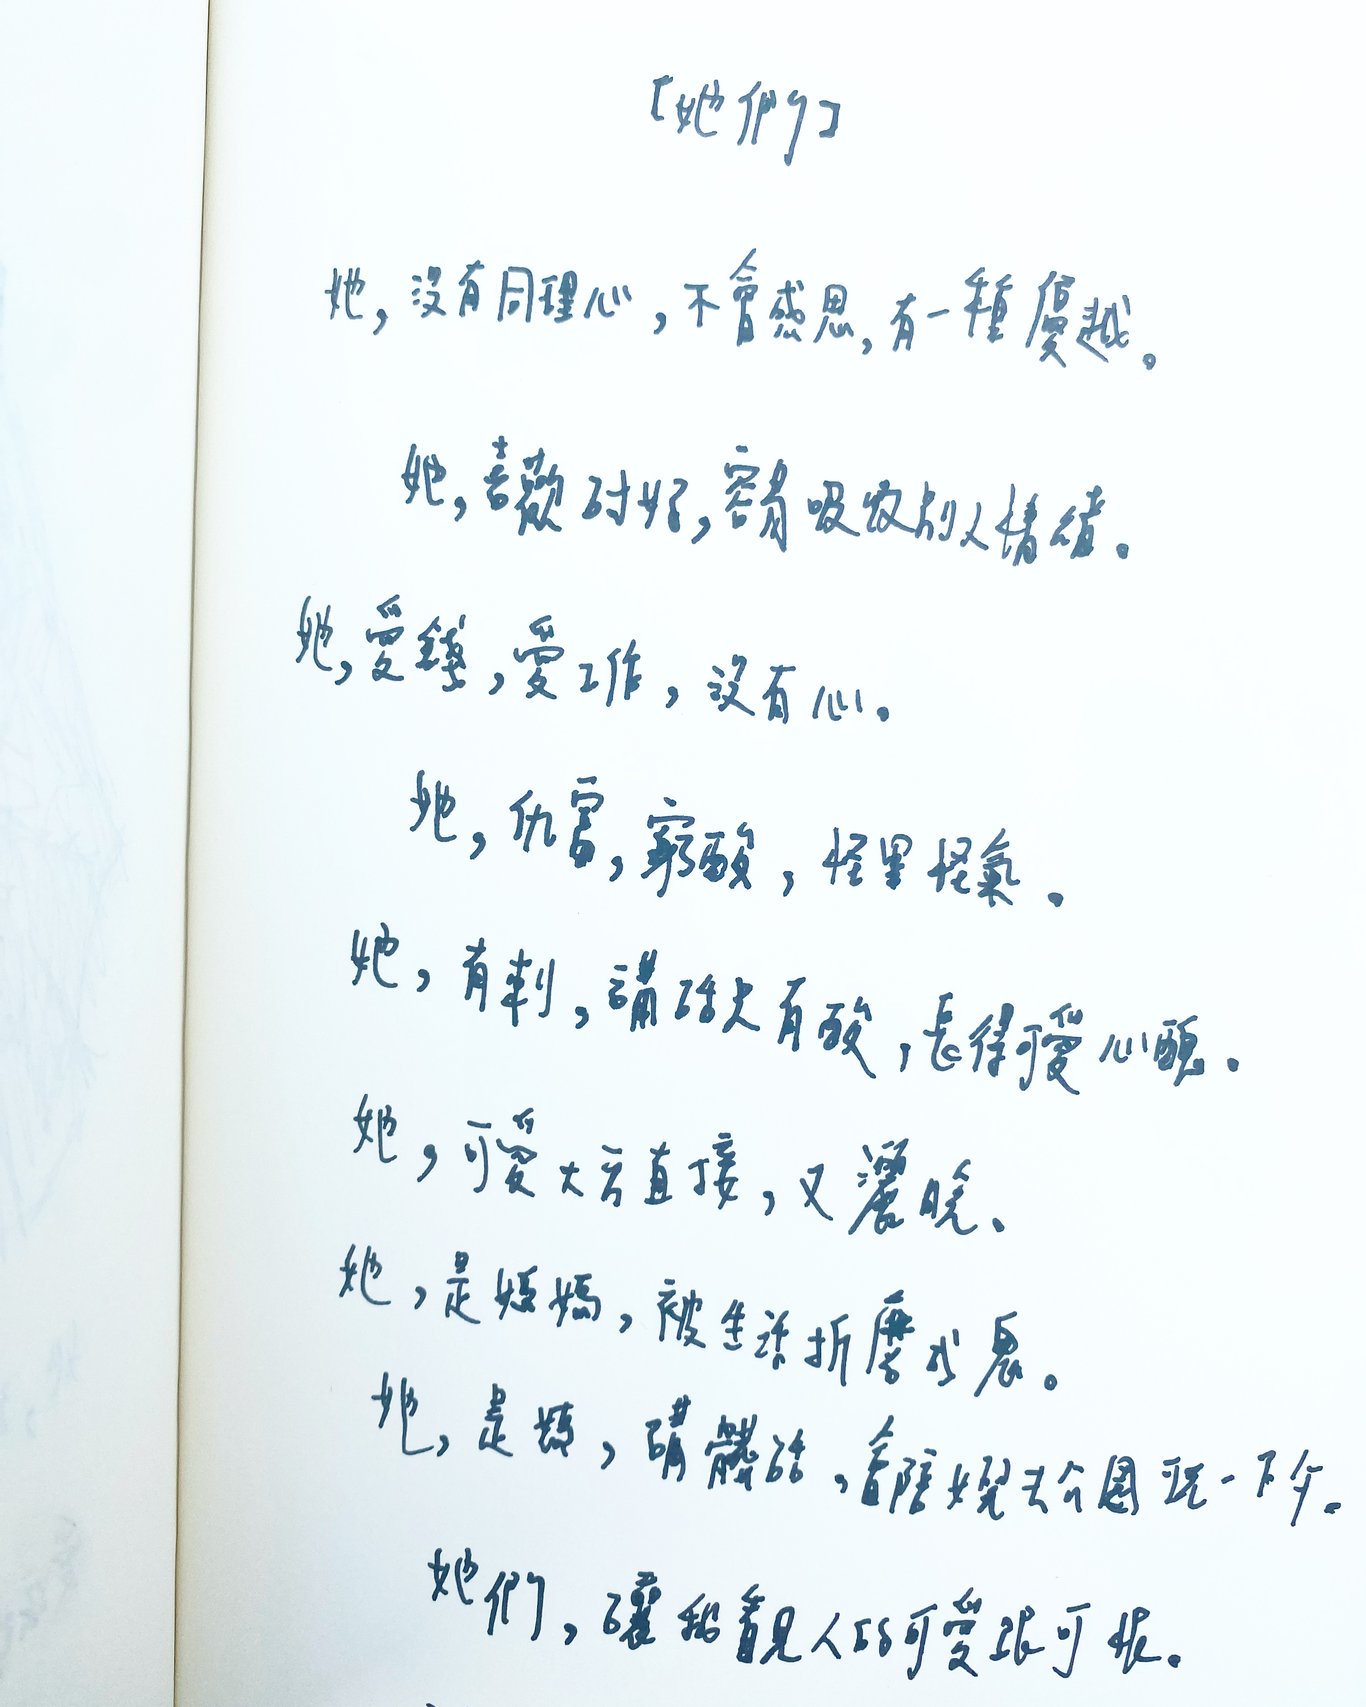 [她們]
她,沒有同理心,不會感恩,有一種優越。
她,喜歡討好,容易吸收別人情緒。
她,愛錢,愛工作,沒有心。
她,仇富,窮酸,怪里怪氣。
她,有刺,講話尖有酸,長得可愛心醜。
她,可愛大方直接,又灑脫、
她,是媽媽,被生活折磨成鬼。
她,是媽,講髒話,會陪女兒去公園玩一下午。
她們,讓我看見人的可愛跟可恨。